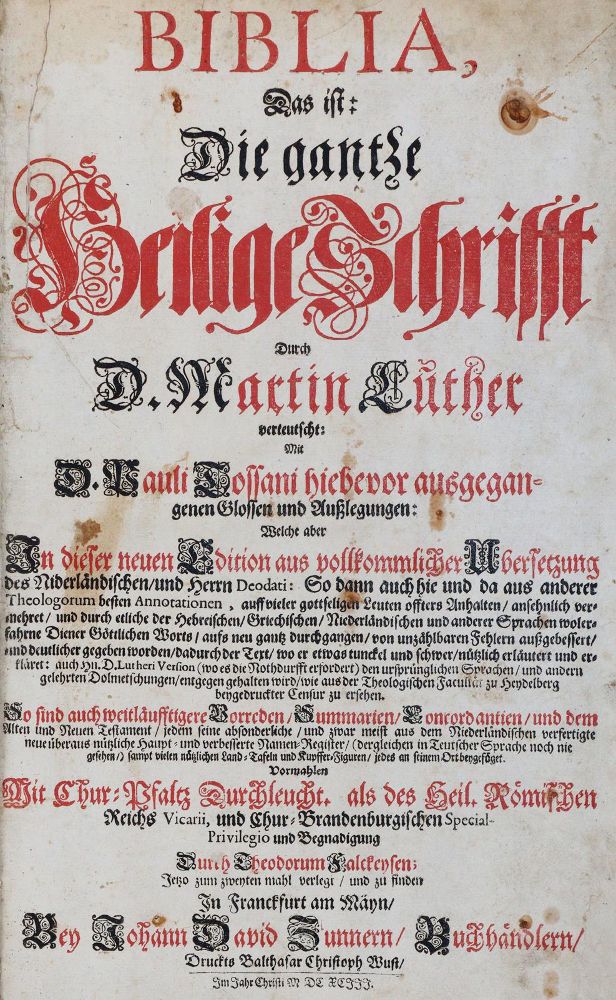 BIBLIA,
Das ist:
Die gantze
Heilige Schrifft
Durch
D. Martin Luther
verteutscht:
Mit
D. Pauli Tossani hiebevor ausgegan-
genen Glossen und Außlegungen:
Welche aber
In dieser neuen Edition aus vollkommlicher Ubersetzung
des Niderländischen/und Herrn Deodati: So dann auch hie und da aus anderer
Theologorum besten Annotationen, auff vieler gottseligen Leuten öffters Anhalten/ ansehnlich ver-
mehret/ und durch etliche der Hebreischen/Griechischen/ Niederländischen und anderer Sprachen woler-
fahrne Diener Göttlichen Worts/ aufs neu gantz durchgangen/ von unzählbaren Fehlern außgebessert/
und deutlicher gegeben worden/dadurch der Text/ wo er etwas tunckel und schwer/nützlich erläutert und er-
kläret: auch Hn. D. Lutheri Version (wo es die Nothdurfft erfordert) den ursprünglichen Sprachen/ und andern
gelehrten Dolmetschungen/entgegen gehalten wird/wie aus der Theologischen Facultät zu Heydelberg
beygedruckter Censur zu ersehen.
So sind auch weitläufftigere Vorreden/ Summarien/ Concordantien/ und dem
Alten und Neuen Testament/ jedem seine absonderliche/ und zwar meist aus dem Niederländischen verfertigte
neue überaus nützliche Haupt- und verbesserte Namen-Register/ (dergleichen in Teutscher Sprache noch nie
gesehen/) sampt vielen nützlichen Land-Tafeln und Kupffer-Figuren/ jedes an seinem Ort beygefüget.
Vormahlen
Mit Chur-Pfaltz Durchleucht. als des Heil. Römischen
Reichs Vicarii, und Chur-Brandenburgischen Special-
Privilegio und Begnadigung
Durch Theodorum Falckeysen;
Jetzo zum zweyten mahl verlegt/ und zu finden
In Franckfurt am Mäyn/
Bey Johann David Zunnern/ Buchhändlern/
Druckts Balthasar Christoph Wust/
Im Jahr Christi M DC XCIII.